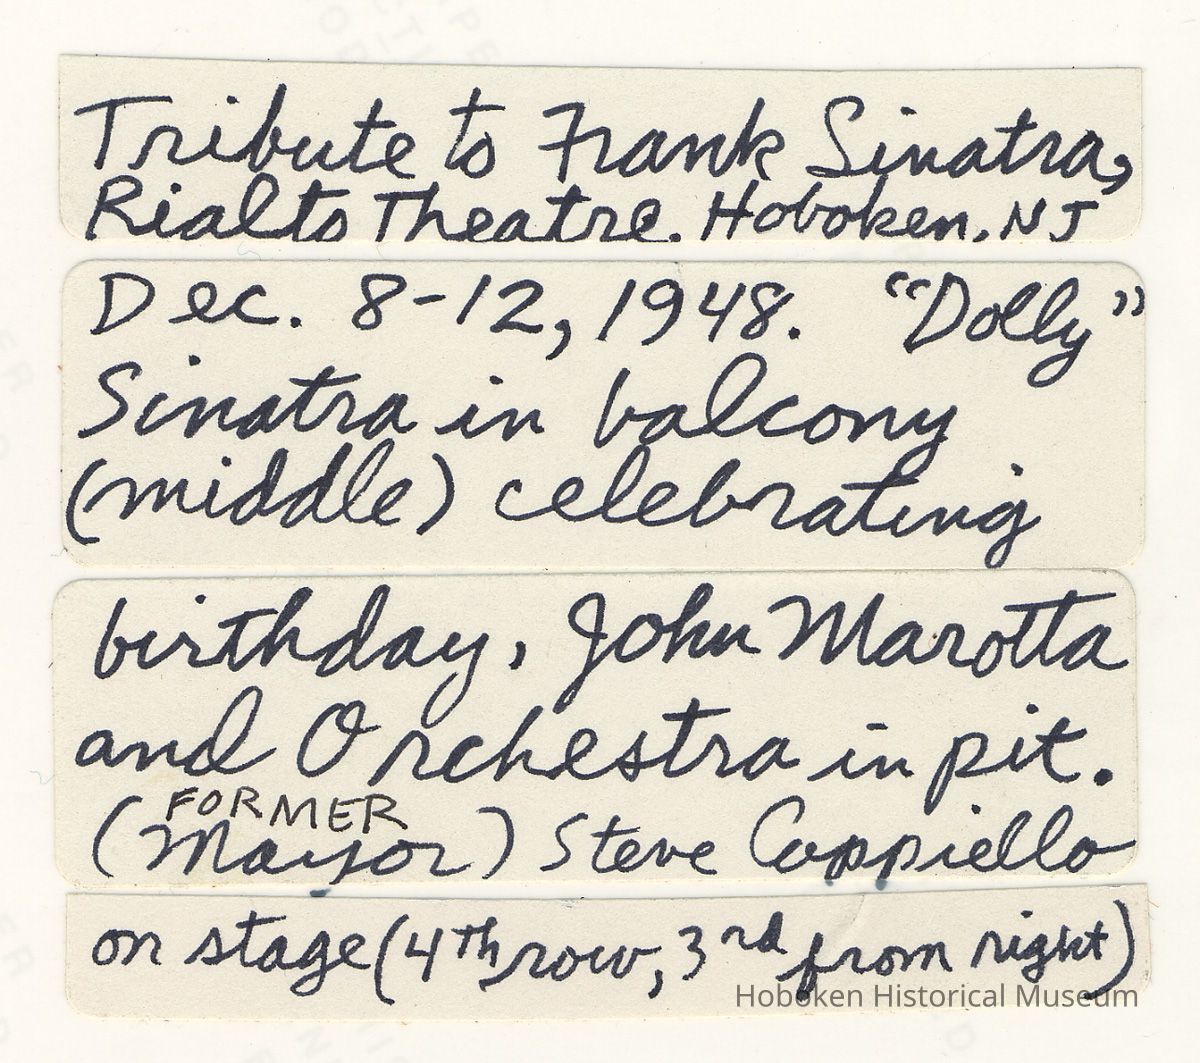 Tribute to Frank Sinatra,
Rialto Theatre. Hoboken, NJ
Dec. 8-12, 1948. "Dolly"
Sinatra in balcony
(middle) celebrating
birthday, John Marotta
and Orchestra in pit.
FORMER
(Mayor) Steve Cappiello
on stage (4th row, 3rd from right)
Hoboken Historical Museum